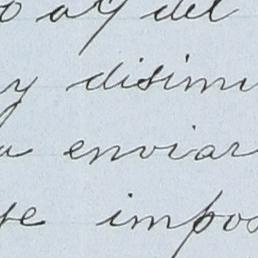 del
y disimu
enviar
se impos